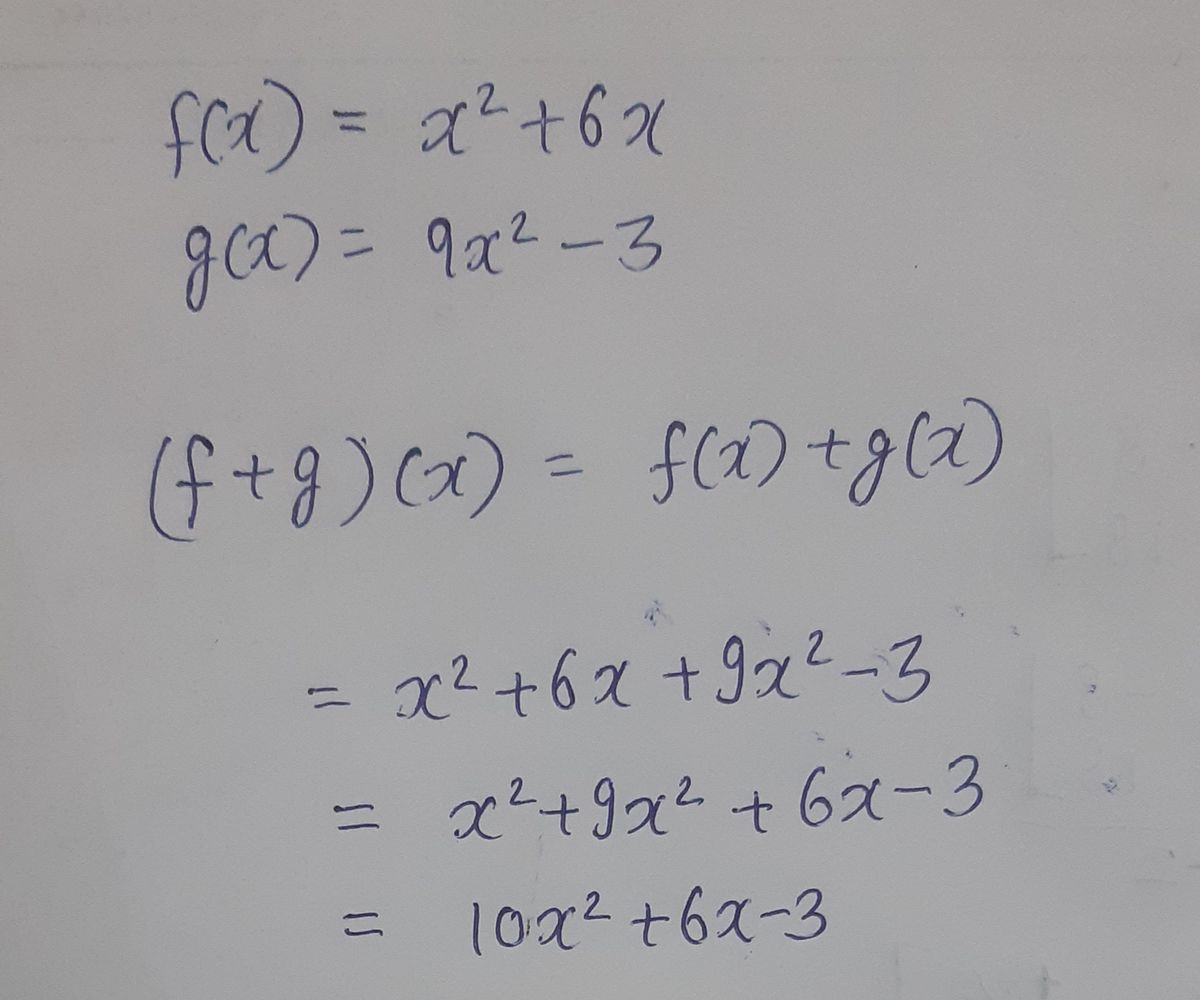 f(x) = x² + 6x
g(x) = 9x² − 3
(f + g)(x) = f(x) + g(x)
= x² + 6x + 9x² − 3
= x² + 9x² + 6x − 3
= 10x² + 6x − 3